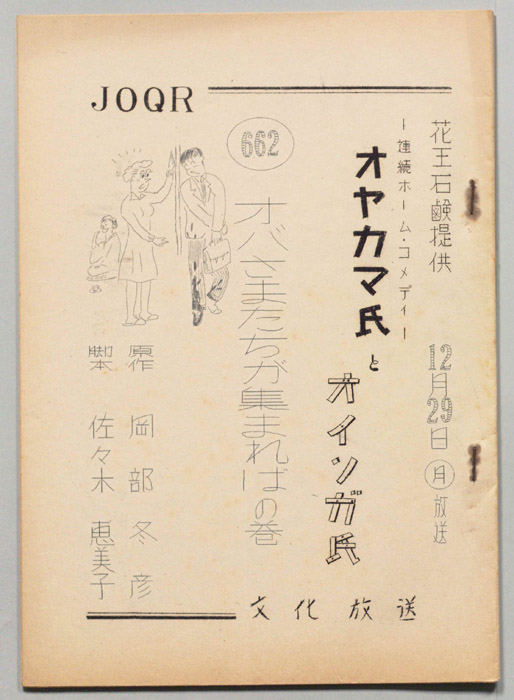 JOQR
花王石鹸提供
12月29日(月)放送
ー連続ホーム・コメディー
オヤカマ氏と
オイソガ氏
662
オバさまたちが集まればの巻
原作 岡部冬彦
脚本 佐々木恵美子
文化放送